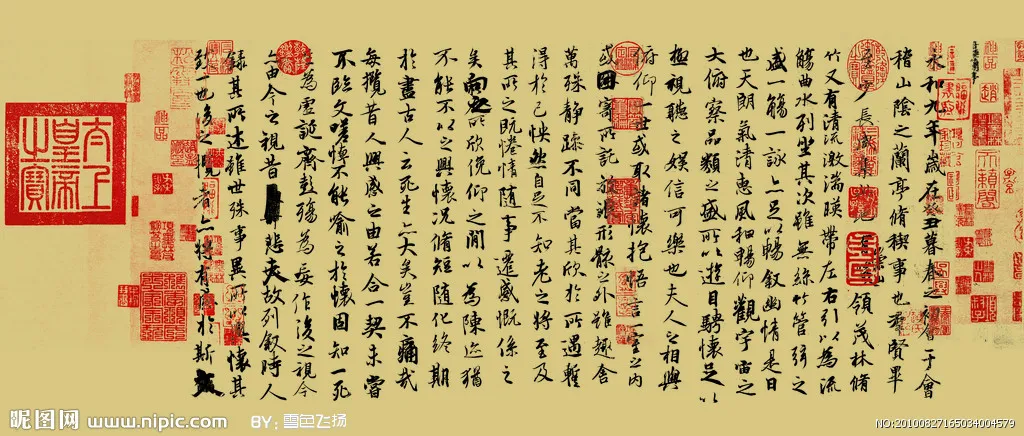 永和九年歲在癸丑暮春之初會于會
稽山陰之蘭亭脩禊事也羣賢畢
少長咸集此地 領茂林脩
竹又有清流激湍暎帶左右引以為流
觴曲水列坐其次雖無絲竹管弦之
盛一觴一詠亦足以暢敘幽情是日
也天朗氣清惠風和暢仰觀宇宙之
大俯察品類之盛所以遊目騁懷足以
極視聽之娛信可樂也夫人之相與
俯仰一世或取諸懷抱悟言一室之內
或因寄所託放浪形骸之外雖趣舍
萬殊靜躁不同當其欣於所遇暫
得於己怏然自足不知老之將至及
其所之既惓情隨事遷感慨係之
矣向之所欣俛仰之閒以為陳迹猶
不能不以之興懷況脩短隨化終期
於盡古人云死生亦大矣豈不痛哉
每攬昔人興感之由若合一契未嘗
不臨文嗟悼不能喻之於懷固知一死
生為虛誕齊彭殤為妄作後之視今
亦由今之視昔悲夫故列敘時人
錄其所述雖世殊事異所以興懷其
致一也後之攬者亦將有感於斯文
太上
皇帝
之寶
昵图网 www.nipic.com BY: 雪色飞扬
NO:20100827165034004579